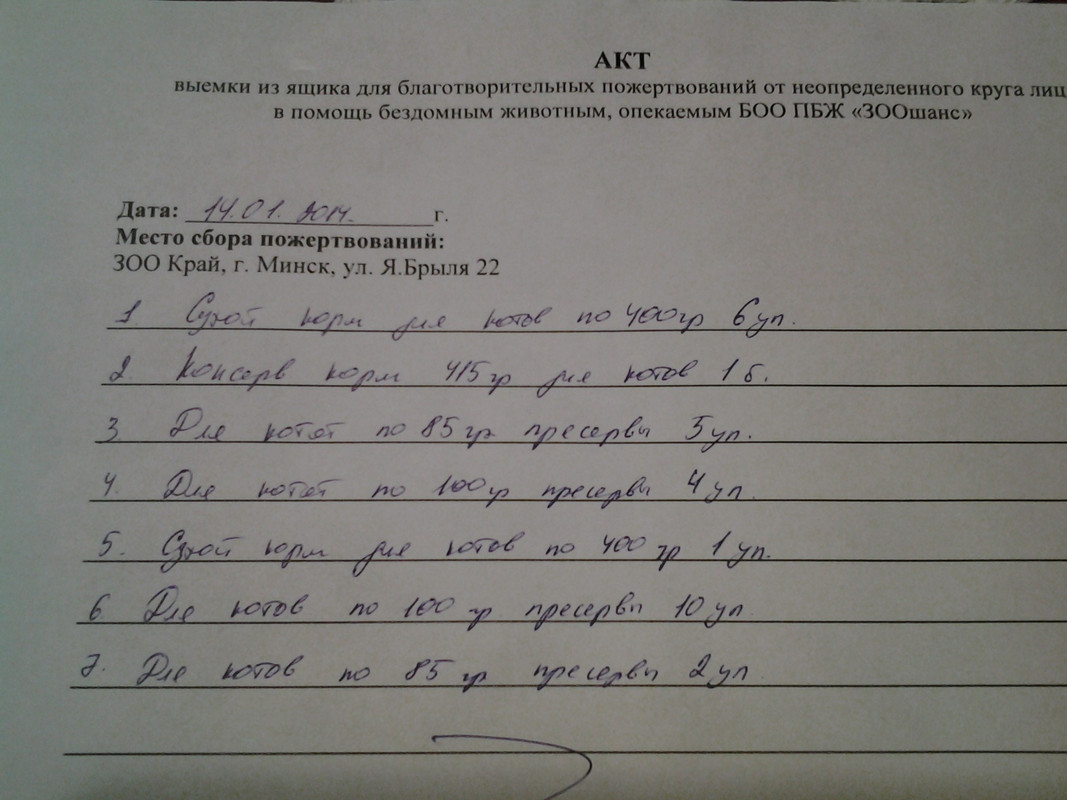 АКТ
выемки из ящика для благотворительных пожертвований от неопределенного круга лиц
в помощь бездомным животным, опекаемым БОО ПБЖ «ЗООшанс»
Дата: 14.01.2014. г.
Место сбора пожертвований:
ЗОО Край, г. Минск, ул. Я.Брыля 22
1. Сухой корм для котов по 400гр 6уп.
2. Консерв корм 415гр для котов 1б.
3. Для котят по 85гр пресервы 5уп.
4. Для котят по 100гр пресервы 4уп.
5. Сухой корм для котов по 400 гр 1уп.
6. Для котов по 100 гр пресервы 10 уп.
7. Для котов по 85 гр пресервы 2уп